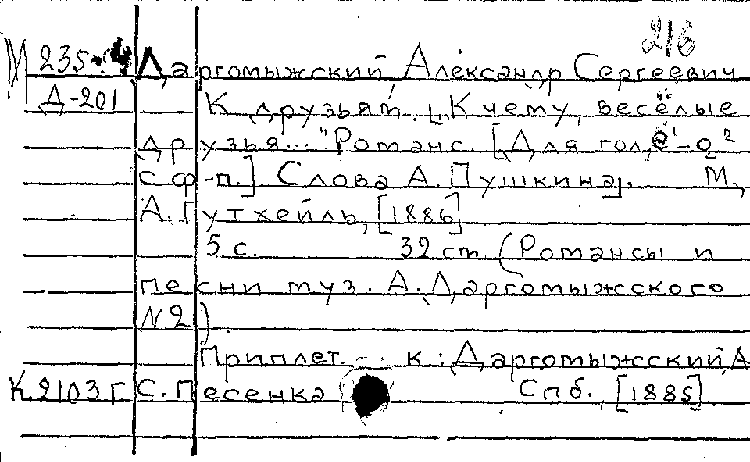 216
М 235-4 Даргомыжский, Александр Сергеевич
Д-201 К друзьям. „К чему, весёлые
друзья..." Романс. [Для гол. е¹-а²
с ф-п.] Слова А. Пушкина. М,
А. Гутхейль, [1886]
5 с. 32 см. (Романсы и
песни муз. А. Даргомыжского
№2).
Приплет. к: Даргомыжский, А
К 2103 Г С. Песенка Спб. [1885]